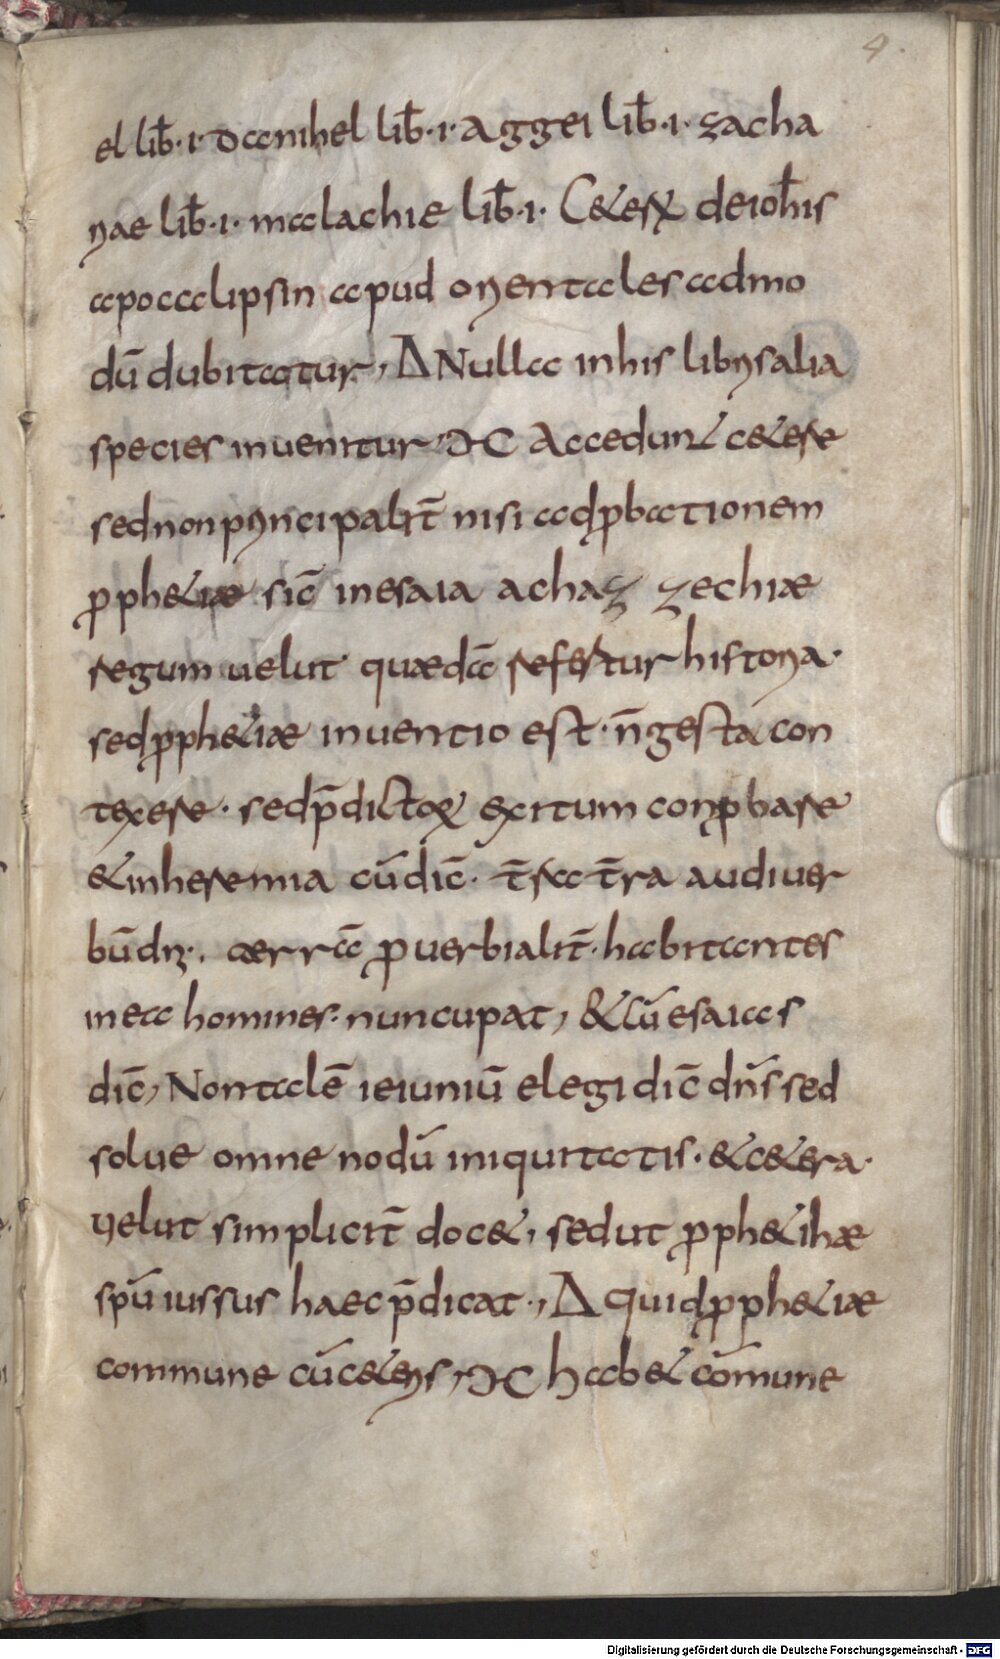 4.
el lib̄·i· danihel lib̄·i· aggei lib̄·i· zacha
riae lib̄·i· malachie lib̄·i· Ceterꝝ deioh̄is
apocalipsin apud orientales admo
dū dubitatur, Δ Nulla inhis librisalia
species invenitur, ΜC Accedunt cetere
sednonprincipalit̄ nisi adꝓbationem
ꝓphetiae sic̄ inesaia achaz zechiae
regum uelut quaedā refertur historia·
sedꝓphetiae inuentio est· n̄gesta con
texere· sedp̄dictoꝝ exitum conꝓbare
&inheremia cūdic̄· t̄ra t̄ra audiver
būdn̄i·, aerrā ꝓverbialit̄· habitantes
inea homines· nuncupat, &cū esaias
dic̄, Nontalē ieiuniū elegi dic̄ dn̄s sed
solve omne nodū iniquitatis· &cetera·
velut simplicit̄ docet, sedut ꝓphetihae
sp̄u iussus haecp̄dicat·, Δ Quidꝓphetiae
commune cūceteris, ΜC habet cōmune
Digitalisierung gefördert durch die Deutsche Forschungsgemeinschaft - DFG